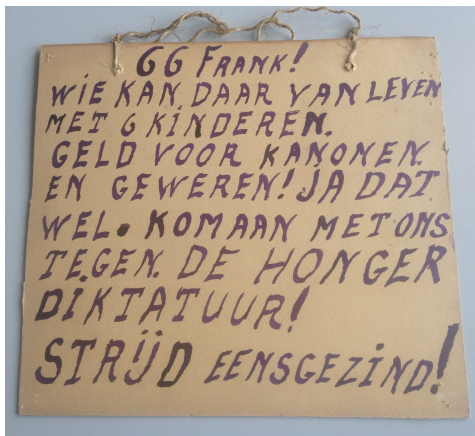 66 FRANK!
WIE KAN DAAR VAN LEVEN
MET 6 KINDEREN.
GELD VOOR KANONEN.
EN GEWEREN! JA DAT
WEL. KOMAAN MET ONS
TEGEN. DE HONGER
DIKTATUUR!
STRIJD EENSGEZIND!